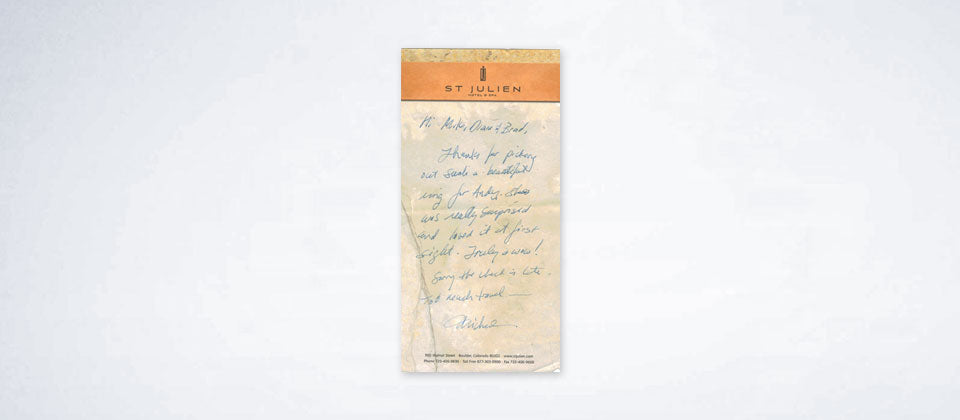 ST JULIEN
HOTEL & SPA
Hi Mike, Diane & Brad,
Thanks for picking
out such a beautiful
ring for Andy. She
was really surprised
and loved it at first
sight. Truly a wow!
Sorry the check is late.
Too much travel —
900 Walnut Street · Boulder, Colorado 80302 · www.stjulien.com
Phone 720-406-9696 · Toll Free 877-303-0900 · Fax